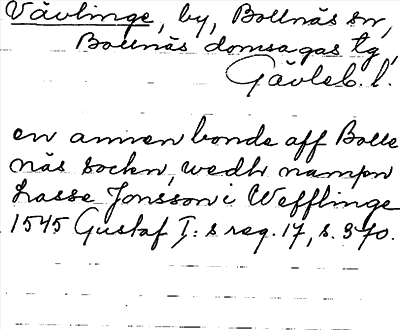 Vävlinge, by, Bollnäs sn,
Bollnäs domsagas tg,
Gävleb. l.
en annen bonde aff Bolle
näs sockn, wedh nampn
Lasse Jonsson i Wefflinge
1545 Gustaf I:s reg. 17, s. 370.